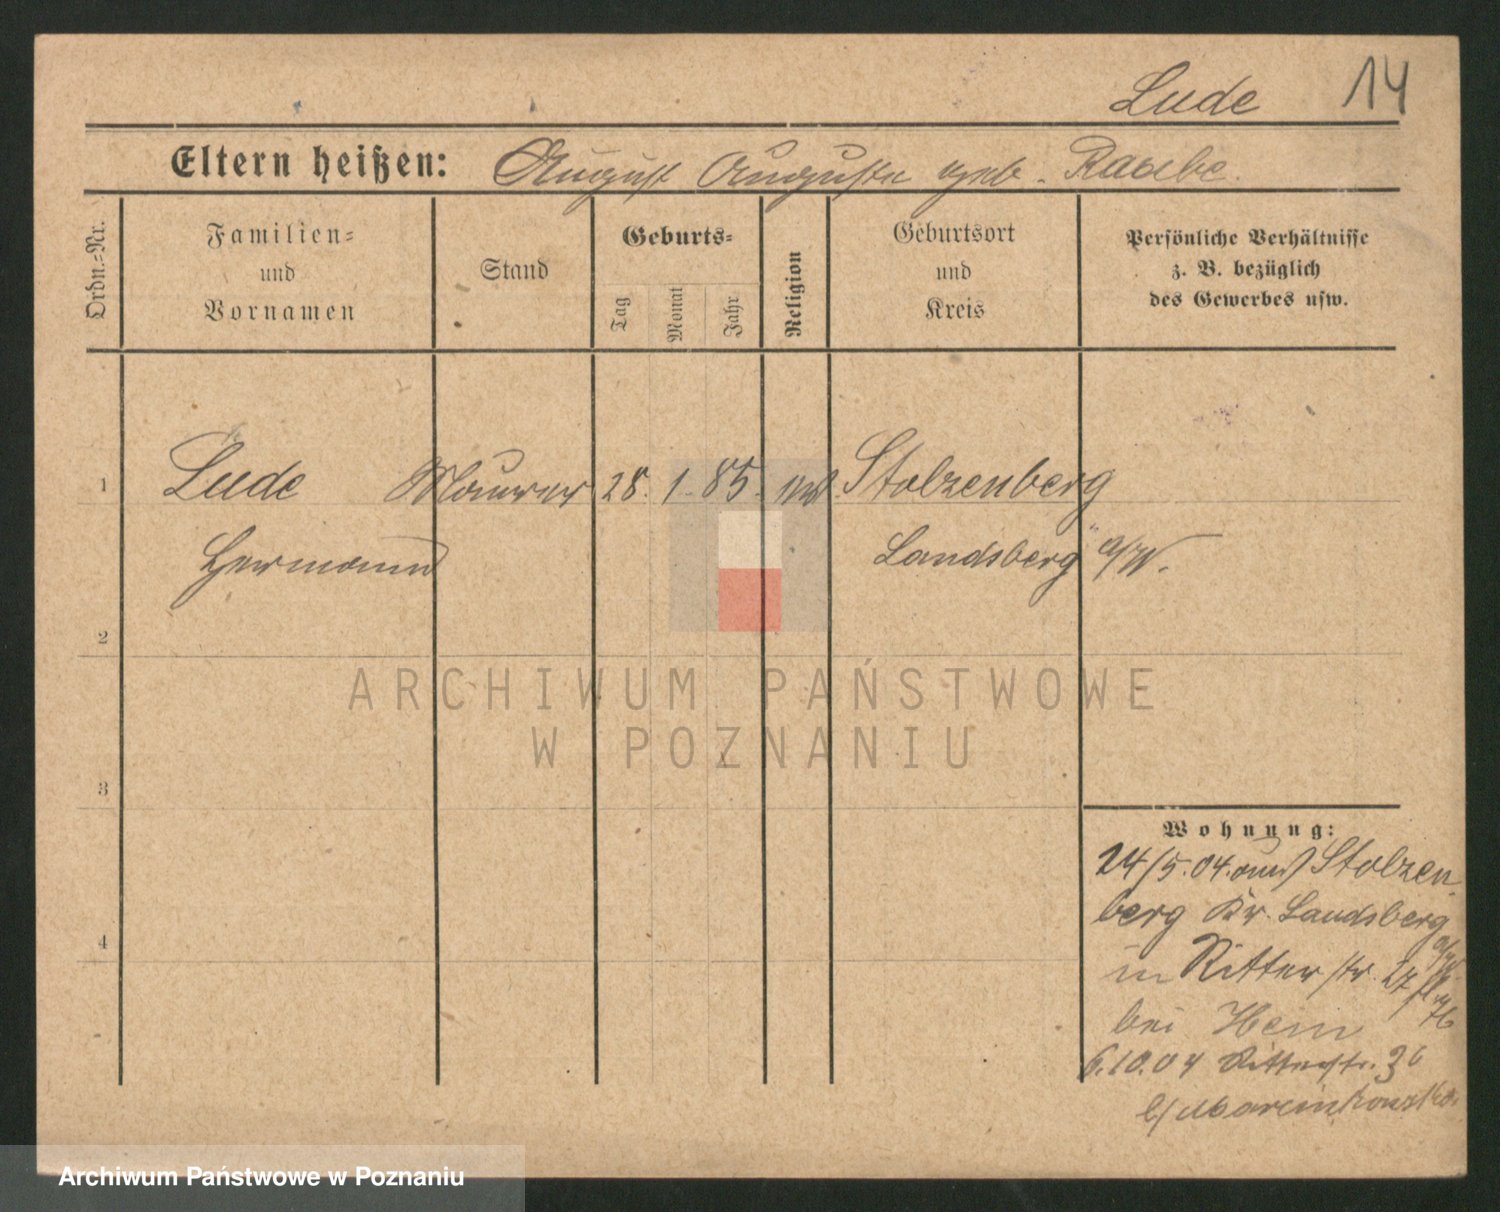 Lude 14
Eltern heißen: August Auguste geb. Raabe.
Ordn.-Nr.
Familien-
und
Vornamen
Stand
Geburts-
Tag
Monat
Jahr
Religion
Geburtsort
und
Kreis
Persönliche Verhältnisse
z. B. bezüglich
des Gewerbes usw.
1 Lude Maurer 28. 1. 85. Stolzenberg
Hermann Landsberg a/W.
2
3
4
Wohnung:
24/5.04. aus Stolzen
berg Kr. Landsberg
a/W.
in Ritterstr. 27
bei Hein
6.10.04 Ritterstr. 36
b/ Marcinkowska.
ARCHIWUM PAŃSTWOWE
W POZNANIU
Archiwum Państwowe w Poznaniu